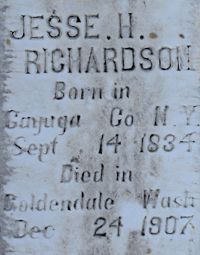 JESSE. H.
RICHARDSON
Born in
Cayuga Co N.Y
Sept 14 1834
Died in
Goldendale Wash
Dec 24 1907